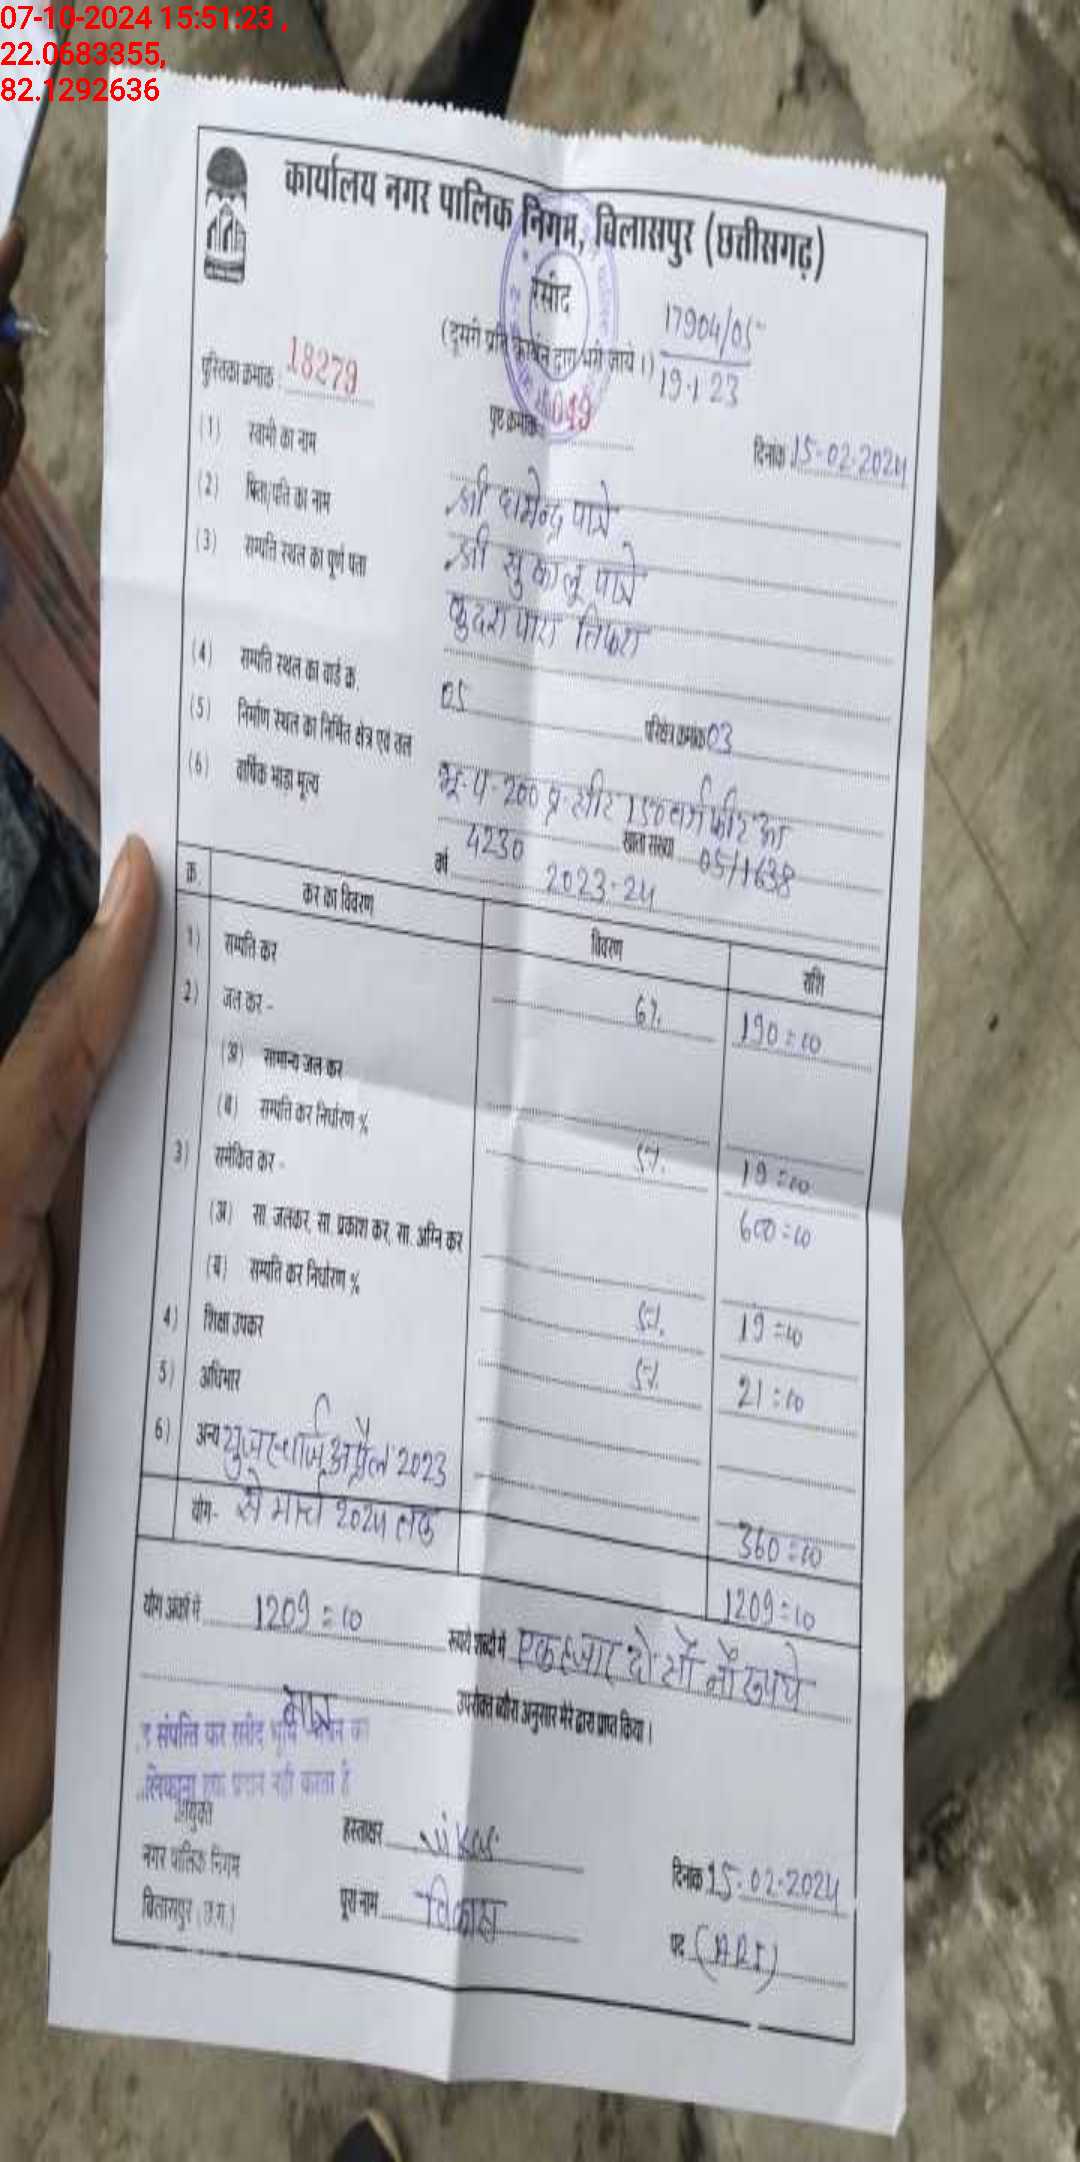 07-10-2024 15:51:23 ,
22.0683355,
82.1292636
कार्यालय नगर पालिक निगम, बिलासपुर (छत्तीसगढ़)
रसीद
(दूसरी प्रति कार्बन द्वारा भरी जाये।)
17904/05
19.1.23
पुस्तिका क्रमांक 18279
पृष्ठ क्रमांक 049
दिनांक 15-02-2024
(1) स्वामी का नाम श्री धर्मेन्द्र पात्रे
(2) पिता/पति का नाम श्री सुकालू पात्रे
(3) सम्पत्ति स्थल का पूर्ण पता कुदरा पारा तिफरा
(4) सम्पत्ति स्थल का वार्ड क्र. 05 परिक्षेत्र क्रमांक 03
(5) निर्माण स्थल का निर्मित क्षेत्र एवं तल भू-प-200 प्र-सीट 150 वर्गफीट का
(6) वार्षिक भाड़ा मूल्य 4230 खाता संख्या 05/1638
वर्ष 2023-24
क्र. कर का विवरण विवरण राशि
1) सम्पत्ति कर 6% 190=00
2) जल कर -
(अ) सामान्य जल कर
(ब) सम्पत्ति कर निर्धारण % 5% 19=00
3) समेकित कर - 600=00
(अ) सा. जलकर, सा. प्रकाश कर, सा. अग्नि कर
(ब) सम्पत्ति कर निर्धारण % 5% 19=00
4) शिक्षा उपकर 5% 21=00
5) अधिभार
6) अन्य युजर चार्ज अप्रैल 2023
से मार्च 2024 तक 360=00
योग- 1209=00
योग अंकों में 1209=00 रूपये शब्दों में एक हजार दो सौ नौ रूपये
मात्र उपरोक्त ब्यौरा अनुसार मेरे द्वारा प्राप्त किया।
संपत्ति कर रसीद भूमि का
प्रदान नहीं करता है
आयुक्त
नगर पालिक निगम
बिलासपुर (छ.ग.)
हस्ताक्षर
दिनांक 15-02-2024
पूरा नाम विकास
पद (ARI)